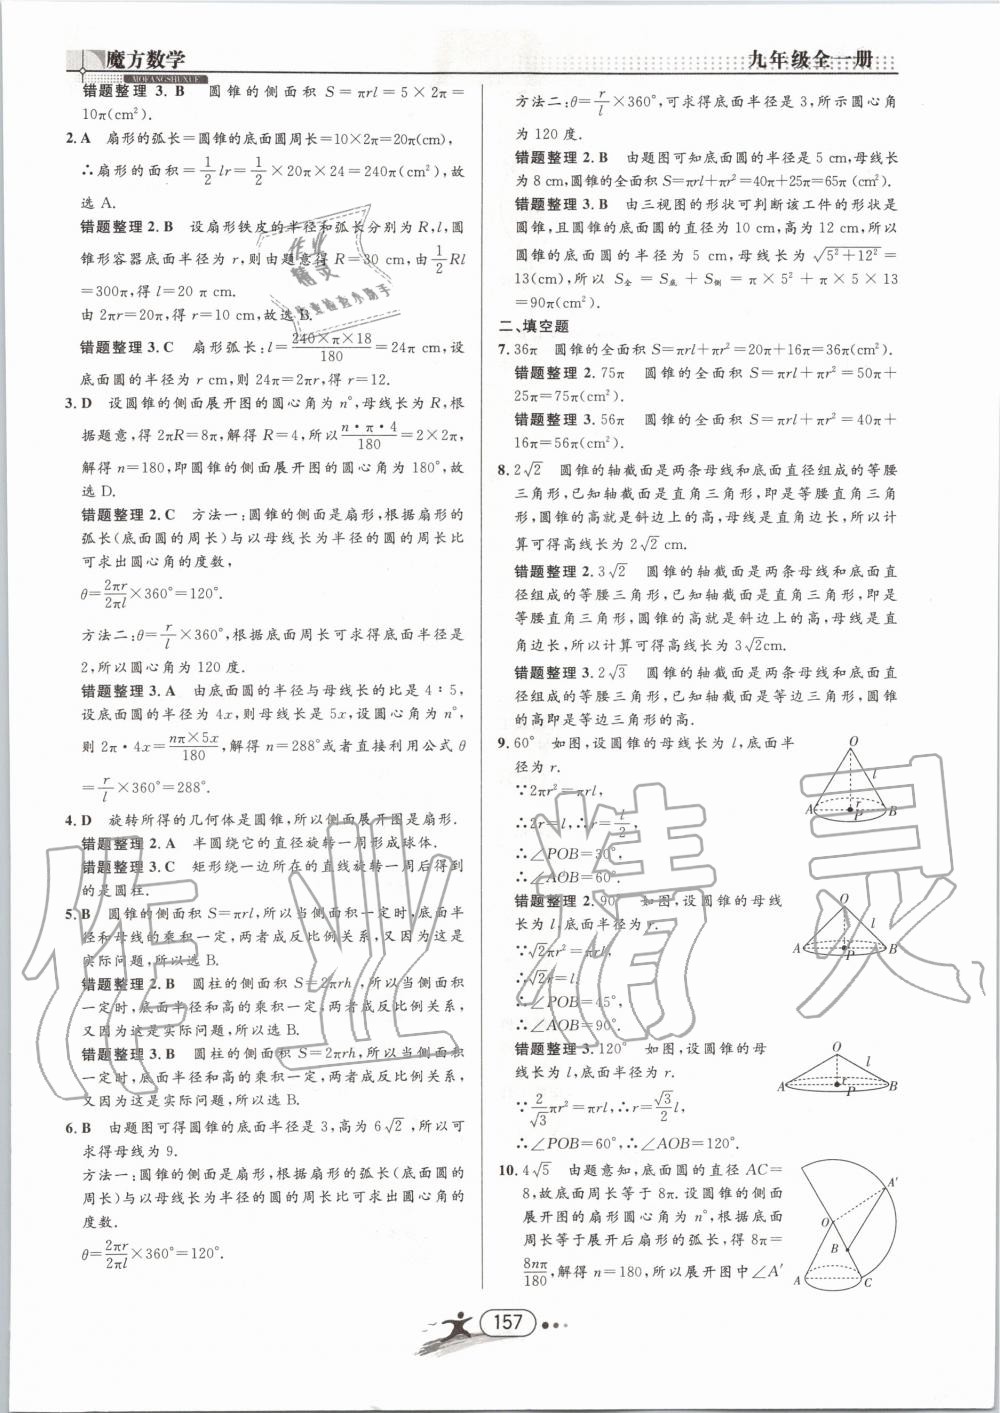 魔方数学
MOFANGSHUXUE
九年级全一册
错题整理 3. B 圆锥的侧面积 S=πrl=5×2π=
10π(cm²).
2. A 扇形的弧长=圆锥的底面圆周长=10×2π=20π(cm),
∴扇形的面积=1/2 lr=1/2×20π×24=240π(cm²),故
选 A.
错题整理 2. B 设扇形铁皮的半径和弧长分别为 R,l,圆
锥形容器底面半径为 r,则由题意得 R=30 cm,由1/2 Rl
=300π,得 l=20 π cm.
由 2πr=20π,得 r=10 cm,故选 B.
错题整理 3. C 扇形弧长:l=(240×π×18)/180=24π cm,设
底面圆的半径为 r cm,则 24π=2πr,得 r=12.
3. D 设圆锥的侧面展开图的圆心角为 n°,母线长为 R,根
据题意,得 2πR=8π,解得 R=4,所以(n·π·4)/180=2×2π,
解得 n=180,即圆锥的侧面展开图的圆心角为 180°,故
选 D.
错题整理 2. C 方法一:圆锥的侧面是扇形,根据扇形的
弧长(底面圆的周长)与以母线长为半径的圆的周长比
可求出圆心角的度数,
θ=2πr/2πl×360°=120°.
方法二:θ=r/l×360°,根据底面周长可求得底面半径是
2,所以圆心角为 120 度.
错题整理 3. A 由底面圆的半径与母线长的比是 4∶5,
设底面圆的半径为 4x,则母线长是 5x,设圆心角为 n°,
则 2π·4x=(nπ×5x)/180,解得 n=288°或者直接利用公式 θ
=r/l×360°=288°.
4. D 旋转所得的几何体是圆锥,所以侧面展开图是扇形.
错题整理 2. A 半圆绕它的直径旋转一周形成球体.
错题整理 3. C 矩形绕一边所在的直线旋转一周后得到
的是圆柱.
5. B 圆锥的侧面积 S=πrl,所以当侧面积一定时,底面半
径和母线的乘积一定,两者成反比例关系,又因为这是
实际问题,所以选 B.
错题整理 2. B 圆柱的侧面积 S=2πrh,所以当侧面积
一定时,底面半径和高的乘积一定,两者成反比例关系,
又因为这是实际问题,所以选 B.
错题整理 3. B 圆柱的侧面积 S=2πrh,所以当侧面积
一定时,底面半径和高的乘积一定,两者成反比例关系,
又因为这是实际问题,所以选 B.
6. B 由题图可得圆锥的底面半径是 3,高为 6√2,所以可
求得母线为 9.
方法一:圆锥的侧面是扇形,根据扇形的弧长(底面圆的
周长)与以母线长为半径的圆的周长比可求出圆心角的
度数.
θ=2πr/2πl×360°=120°.
方法二:θ=r/l×360°,可求得底面半径是 3,所示圆心角
为 120 度.
错题整理 2. B 由题图可知底面圆的半径是 5 cm,母线长
为 8 cm,圆锥的全面积 S=πrl+πr²=40π+25π=65π (cm²).
错题整理 3. B 由三视图的形状可判断该工件的形状是
圆锥,且圆锥的底面圆的直径为 10 cm,高为 12 cm,所以
圆锥的底面圆的半径为 5 cm,母线长为√(5²+12²)=
13(cm),所以 S全=S底+S侧=π×5²+π×5×13
=90π(cm²).
二、填空题
7. 36π 圆锥的全面积 S=πrl+πr²=20π+16π=36π(cm²).
错题整理 2. 75π 圆锥的全面积 S=πrl+πr²=50π+
25π=75π(cm²).
错题整理 3. 56π 圆锥的全面积 S=πrl+πr²=40π+
16π=56π(cm²).
8. 2√2 圆锥的轴截面是两条母线和底面直径组成的等腰
三角形,已知轴截面是直角三角形,即是等腰直角三角
形,圆锥的高就是斜边上的高,母线是直角边长,所以计
算可得高线长为 2√2 cm.
错题整理 2. 3√2 圆锥的轴截面是两条母线和底面直
径组成的等腰三角形,已知轴截面是直角三角形,即是
等腰直角三角形,圆锥的高就是斜边上的高,母线是直
角边长,所以计算可得高线长为 3√2cm.
错题整理 3. 2√3 圆锥的轴截面是两条母线和底面直
径组成的等腰三角形,已知轴截面是等边三角形,圆锥
的高即是等边三角形的高.
9. 60° 如图,设圆锥的母线长为 l,底面半
径为 r.
∵2πr²=πrl,
∴2r=l,∴r=l/2,
∴∠POB=30°,
∴∠AOB=60°.
O
l
A
r
P
B
错题整理 2. 90° 如图,设圆锥的母线
长为 l,底面半径为 r.
∵√2πr²=πrl,
∴√2r=l.
∴∠POB=45°,
∴∠AOB=90°.
O
l
A
r
P
B
错题整理 3. 120° 如图,设圆锥的母
线长为 l,底面半径为 r.
∵2/√3 πr²=πrl,∴r=√3/2 l,
∴∠POB=60°,∴∠AOB=120°.
O
l
A
r
P
B
10. 4√5 由题意知,底面圆的直径 AC=
8,故底面周长等于 8π.设圆锥的侧面
展开图的扇形圆心角为 n°,根据底面
周长等于展开后扇形的弧长,得 8π=
8nπ/180,解得 n=180,所以展开图中∠A′
A′
O
B
A
C
157
作业精灵
作业
精灵
作业检查小助手